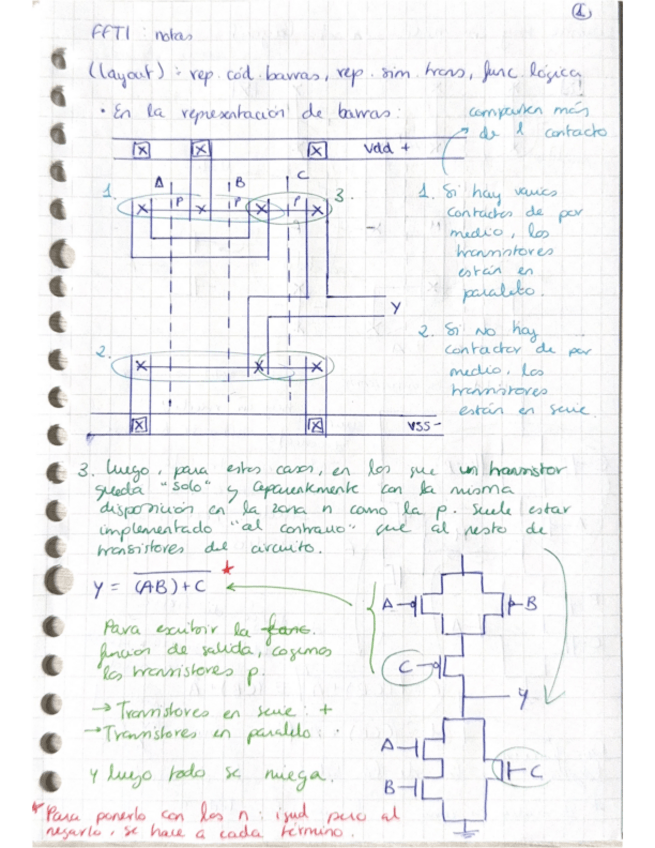 1
FFTI: notas
(layout): rep. cód. barras, rep. sim. trans, func. lógica
• En la representación de barras:
comparten más
de 1 contacto
X X X Vdd +
A B C
1. X P X P X P X 3.
1. Si hay varios
contactos de por
medio, los
transistores
están en
paralelo.
Y
2. X X X
2. Si NO hay
contactos de por
medio, los
transistores
están en serie.
X X VSS -
3. Luego, para estos casos, en los que un transistor
queda "solo" y aparentemente con la misma
disposición en la zona n como la p. Suele estar
implementado "al contrario" que al resto de
transistores del circuito.
Y = (AB) + C
A B
C
Y
A
B
C
Para escribir la func.
función de salida, cogemos
los transistores p.
→ Transistores en serie: +
→ Transistores en paralelo: ·
Y luego todo se niega.
* Para ponerlo con los n: igual pero al
negarlo, se hace a cada término.